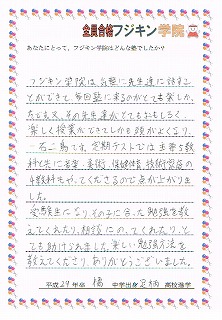 全員合格フジキン学院
あなたにとって、フジキン学院はどんな塾でしたか？
フジキン学院は、気軽に先生達に話すこ
とができて、毎回塾に来るのがとても楽しか
たです。その先生達がとてもおもしろく、
楽しく授業ができてしかも頭がよくなり、
一石二鳥です。定期テストでは主要5教
科と共に音楽、美術、保健体育、技術家庭の
4教科もやってくださるので点が上がりま
した。
受験生になりその子に合った勉強を教
えてくれたり、相談にのってくれたり、と
ても助けられました。楽しい勉強方法を
教えてくださりありがとうございました。
平成29年卒 橘 中学出身 足柄 高校進学